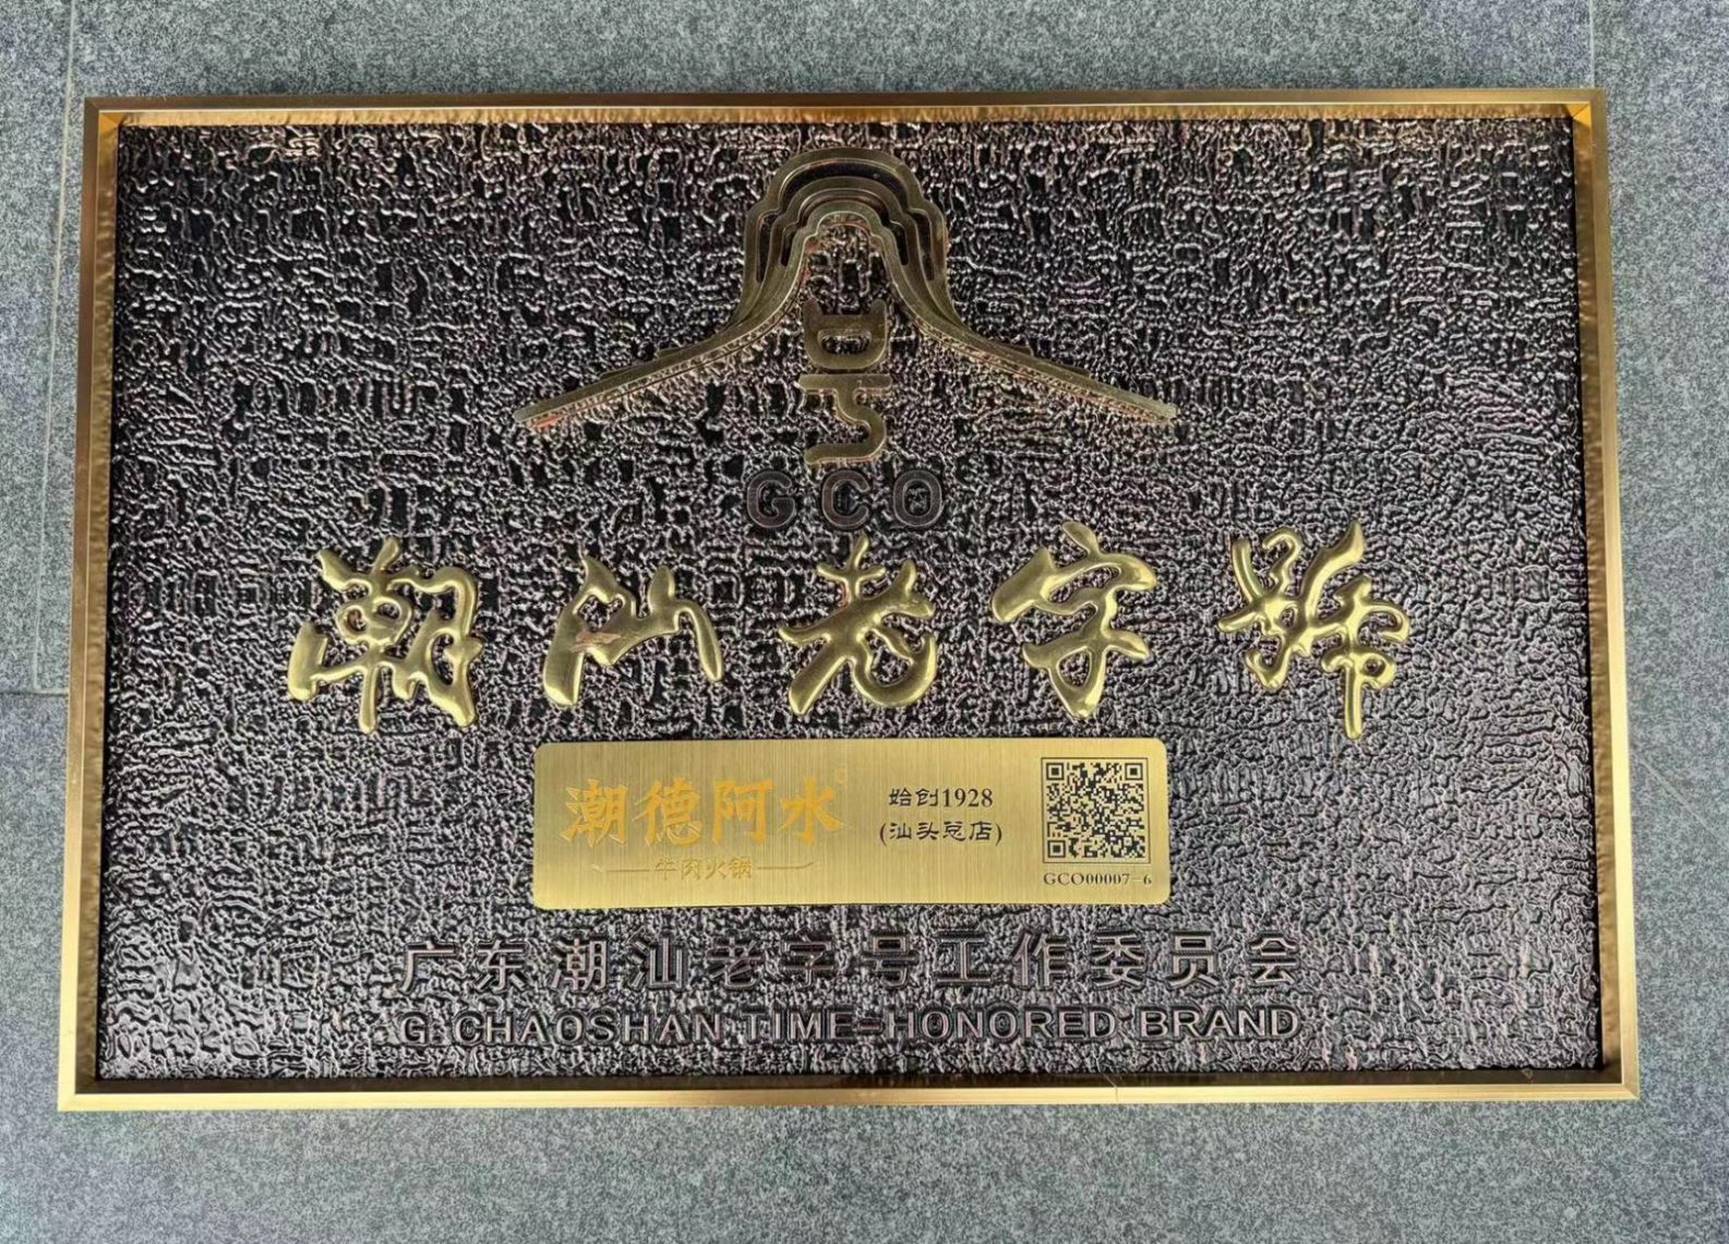 GCO
潮汕老字號
潮德阿水
牛肉火锅
始创1928
(汕头总店)
GCO00007-6
广东潮汕老字号工作委员会
G. CHAOSHAN TIME-HONORED BRAND